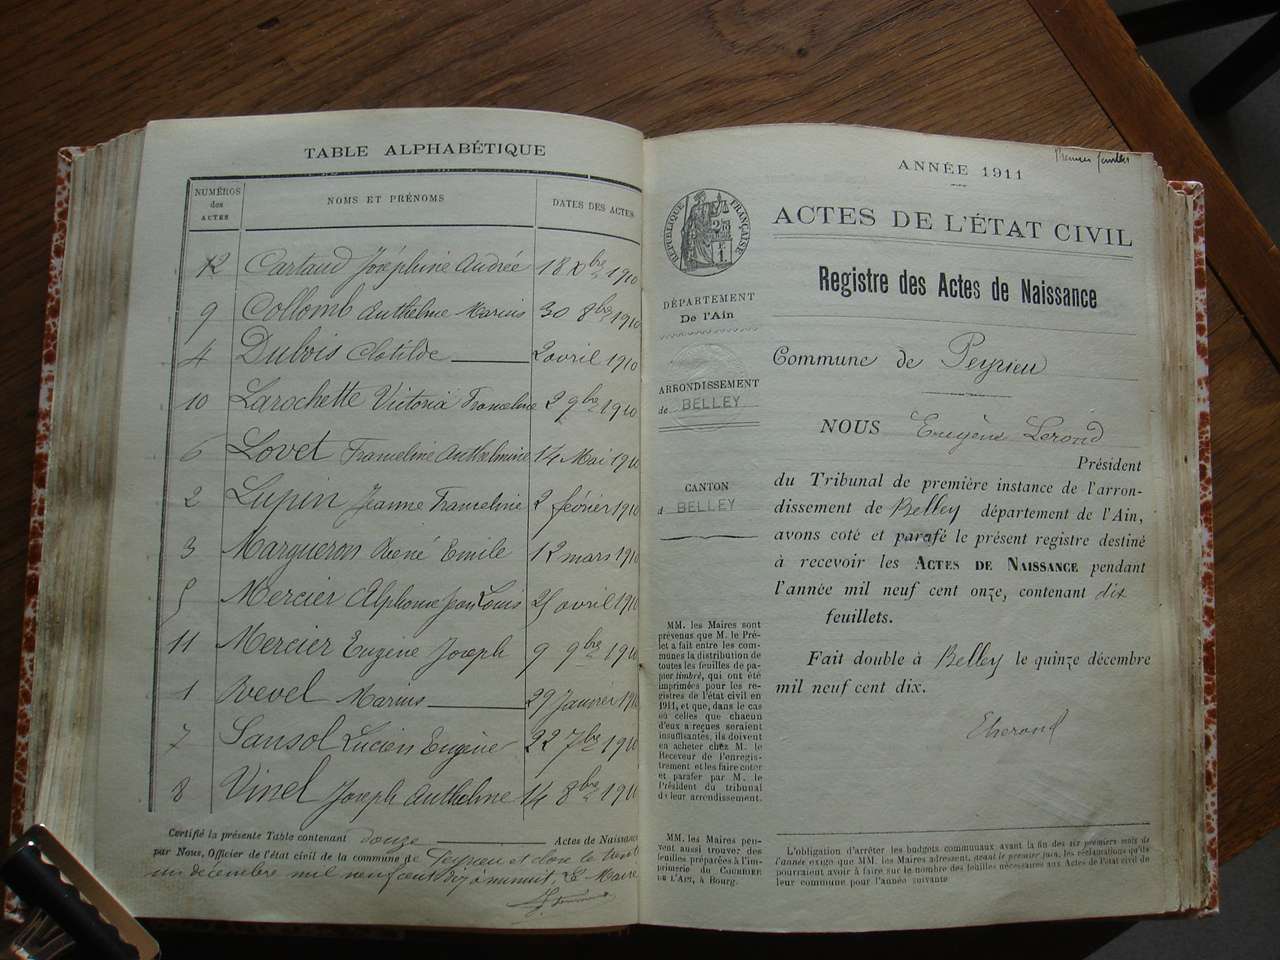 TABLE ALPHABÉTIQUE
NUMÉROS des ACTES
NOMS ET PRÉNOMS
DATES DES ACTES
12 Cartaud Joséphine Andrée 18 Xbre 1910
9 Collomb Anthelme Marius 30 8bre 1910
4 Dubois Clotilde 2 avril 1910
10 Larochette Victoria Franceline 2 9bre 1910
6 Lovet Franceline Anthelmine 14 Mai 1910
2 Lupin Jeanne Franceline 2 février 1910
3 Margueron René Emile 12 mars 1910
5 Mercier Alphonse Jean Louis 25 avril 1910
11 Mercier Eugène Joseph 9 9bre 1910
1 Revel Marius 29 Janvier 1910
7 Sansol Lucien Eugène 22 7bre 1910
8 Vinel Joseph Anthelme 14 8bre 1910
Certifié la présente Table contenant douze Actes de Naissance
par Nous, Officier de l'état civil de la commune de Peyrieu et close le trent
un décembre mil neuf cent dix à minuit. Le Maire
Premier feuillet
ANNÉE 1911
ACTES DE L'ÉTAT CIVIL
RÉPUBLIQUE FRANÇAISE
Registre des Actes de Naissance
DÉPARTEMENT
De l'Ain
Commune de Peyrieu
ARRONDISSEMENT
de BELLEY
CANTON
d BELLEY
NOUS Eugène Lerond
Président
du Tribunal de première instance de l'arron-
dissement de Belley département de l'Ain,
avons coté et parafé le présent registre destiné
à recevoir les ACTES DE NAISSANCE pendant
l'année mil neuf cent onze, contenant dix
feuillets.
Fait double à Belley le quinze décembre
mil neuf cent dix.
MM. les Maires sont
prévenus que M. le Pré-
fet a fait entre les com-
munes la distribution de
toutes les feuilles de pa-
pier timbré, qui ont été
imprimées pour les re-
gistres de l'état civil en
1911, et que, dans le cas
où celles que chacun
d'eux a reçues seraient
insuffisantes, ils doivent
en acheter chez M. le
Receveur de l'enregis-
trement et les faire coter
et parafer par M. le
Président du tribunal
de leur arrondissement.
MM. les Maires peu-
vent aussi trouver des
feuilles préparées à l'im-
primerie du COURRIER
DE L'AIN, à Bourg.
L'obligation d'arrêter les budgets communaux avant la fin des six premiers mois de
l'année exige que MM. les Maires adressent, avant le premier juin, les réclamations qu'ils
pourraient avoir à faire sur le nombre des feuilles nécessaires aux Actes de l'état civil de
leur commune pour l'année suivante